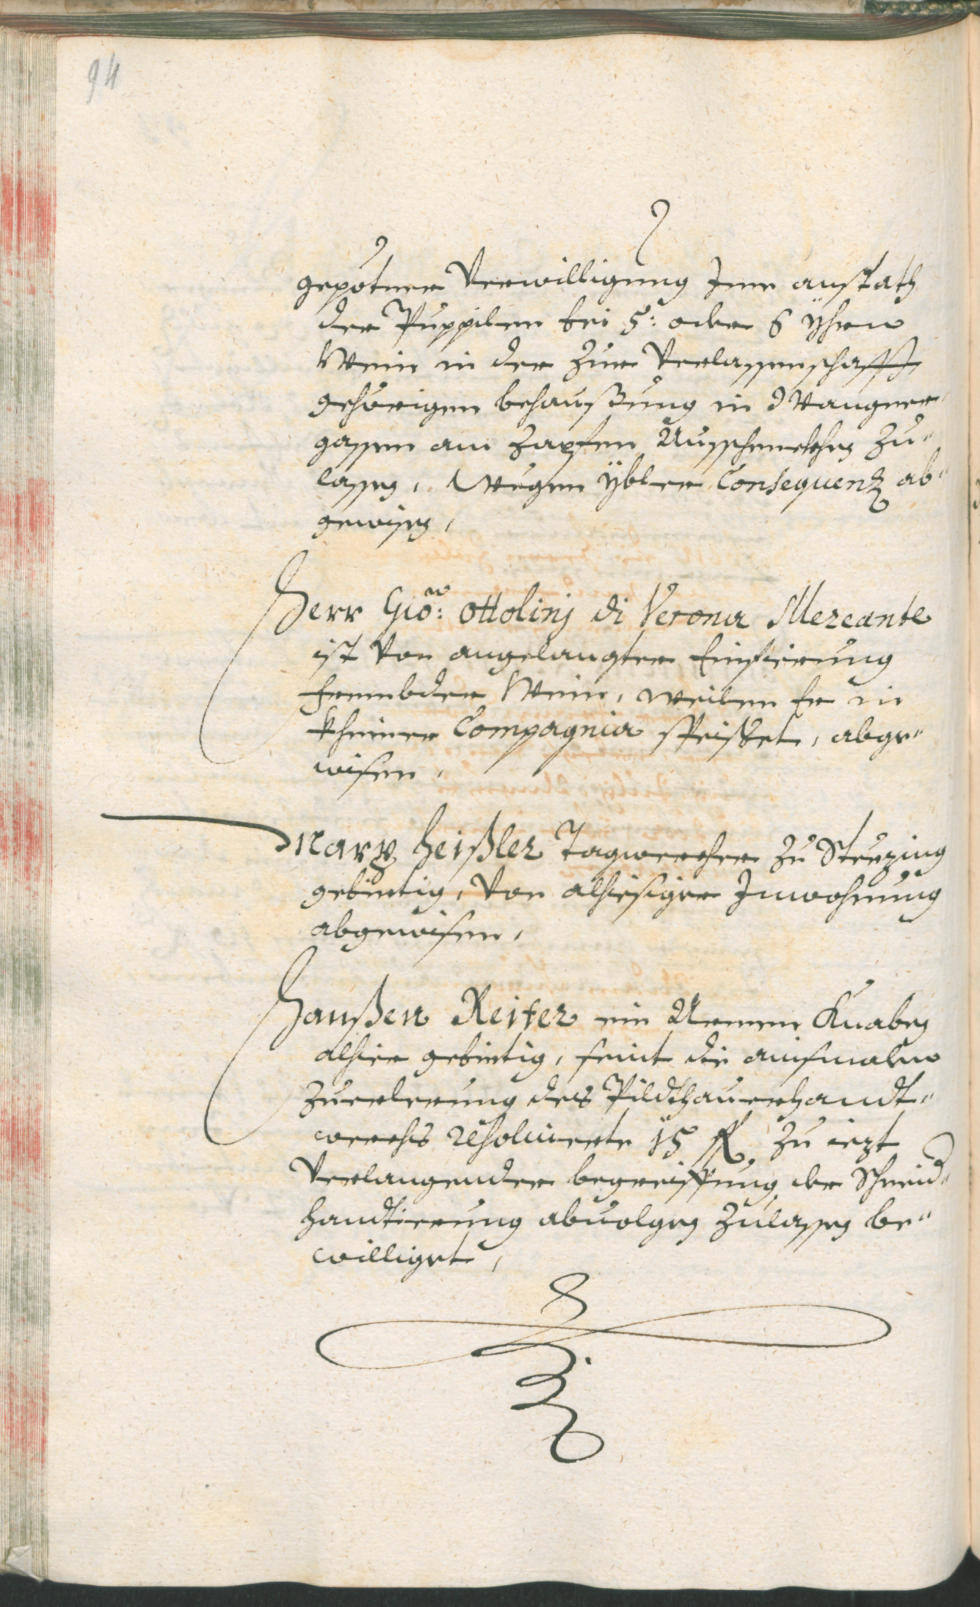 94
gepotner Verwilligung Ime anstath
der Pupplen bei 5: oder 6 Yhrn
Wein in der zur Verlassenschafft
gehörigen behaußung in Wangner
gassen am Zapfen Ausschenckhen zu"
lassen, Wegen ybler Consequenz ab"
gewisen,
Herr Gio: Ottolinj di Verona Mercante
ist Von angelangter Einfierung
frembder Wein, weilen Er in
kheiner Compagnia stehet, abge"
wisen,
Marx Heißler Tagwercher zu Sterzing
gebirtig, Von alhiesiger Inwohnung
abgewisen,
Hanßen Reiter ein Armen Knaben
alhier gebirtig, seint die ainsmals
zuerlernung des Pildthauerhandt"
werchs resolvierte 15 fl zu iezt
Verlangender begreiffung der Schneid"
handtierung abuolgen zulassen be"
williget,